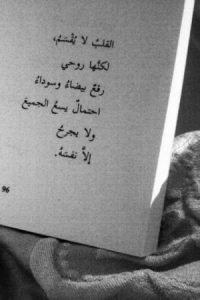 القلبُ لا يُقْسَمُ،
لكنّها روحي
رقعٌ بيضاءُ وسوداءُ
احتمالٌ يسعُ الجميعَ
ولا يجرحُ
إلاّ نفسَهُ.
96